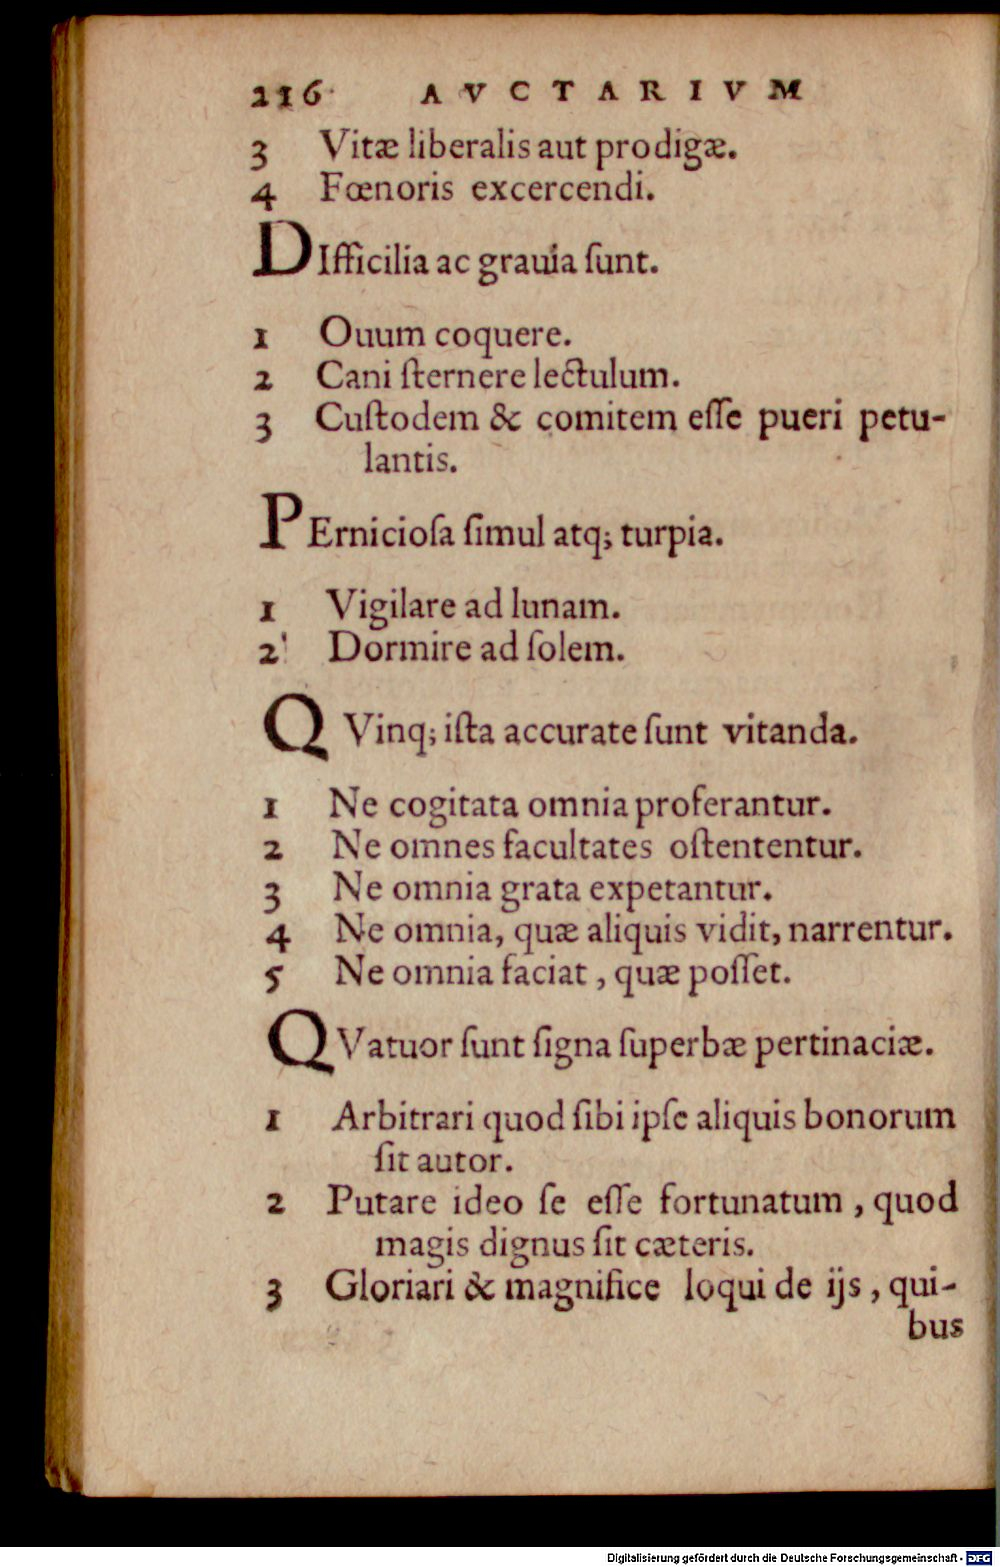 216 AVCTARIVM
3 Vitæ liberalis aut prodigæ.
4 Fœnoris excercendi.
DIfficilia ac grauia ſunt.
1 Ouum coquere.
2 Cani ſternere lectulum.
3 Cuſtodem & comitem eſſe pueri petu-
lantis.
PErnicioſa ſimul atq; turpia.
1 Vigilare ad lunam.
2 Dormire ad ſolem.
QVinq; iſta accurate ſunt vitanda.
1 Ne cogitata omnia proferantur.
2 Ne omnes facultates oſtententur.
3 Ne omnia grata expetantur.
4 Ne omnia, quæ aliquis vidit, narrentur.
5 Ne omnia faciat, quæ poſſet.
QVatuor ſunt ſigna ſuperbæ pertinaciæ.
1 Arbitrari quod ſibi ipſe aliquis bonorum
ſit autor.
2 Putare ideo ſe eſſe fortunatum, quod
magis dignus ſit cæteris.
3 Gloriari & magnifice loqui de ijs, qui-
bus
Digitalisierung gefördert durch die Deutsche Forschungsgemeinschaft - DFG